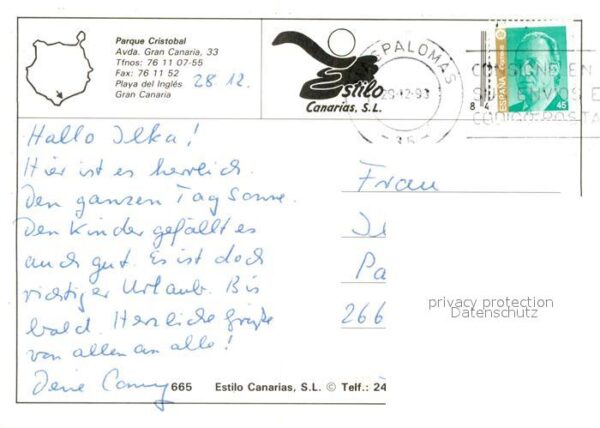 Parque Cristobal
Avda. Gran Canaria, 33
Tfnos: 76 11 07-55
Fax: 76 11 52
Playa del Inglés
Gran Canaria
28.12.
Estilo
Canarias, S.L.
PALOMAS
29-12-93
35
CONSIGNE EN
SUS ENVIOS E
CODIGO POSTA
ESPAÑA
45
8 4
Hallo Ilka!
Hier ist es herrlich.
Den ganzen Tag Sonne.
Den Kinder gefällt es
auch gut. Es ist doch
richtiger Urlaub. Bis
bald. Herzliche Grüße
von allen an alle!
Deine
Frau
Pa
266
privacy protection
Datenschutz
665 Estilo Canarias, S.L. © Telf.: 24